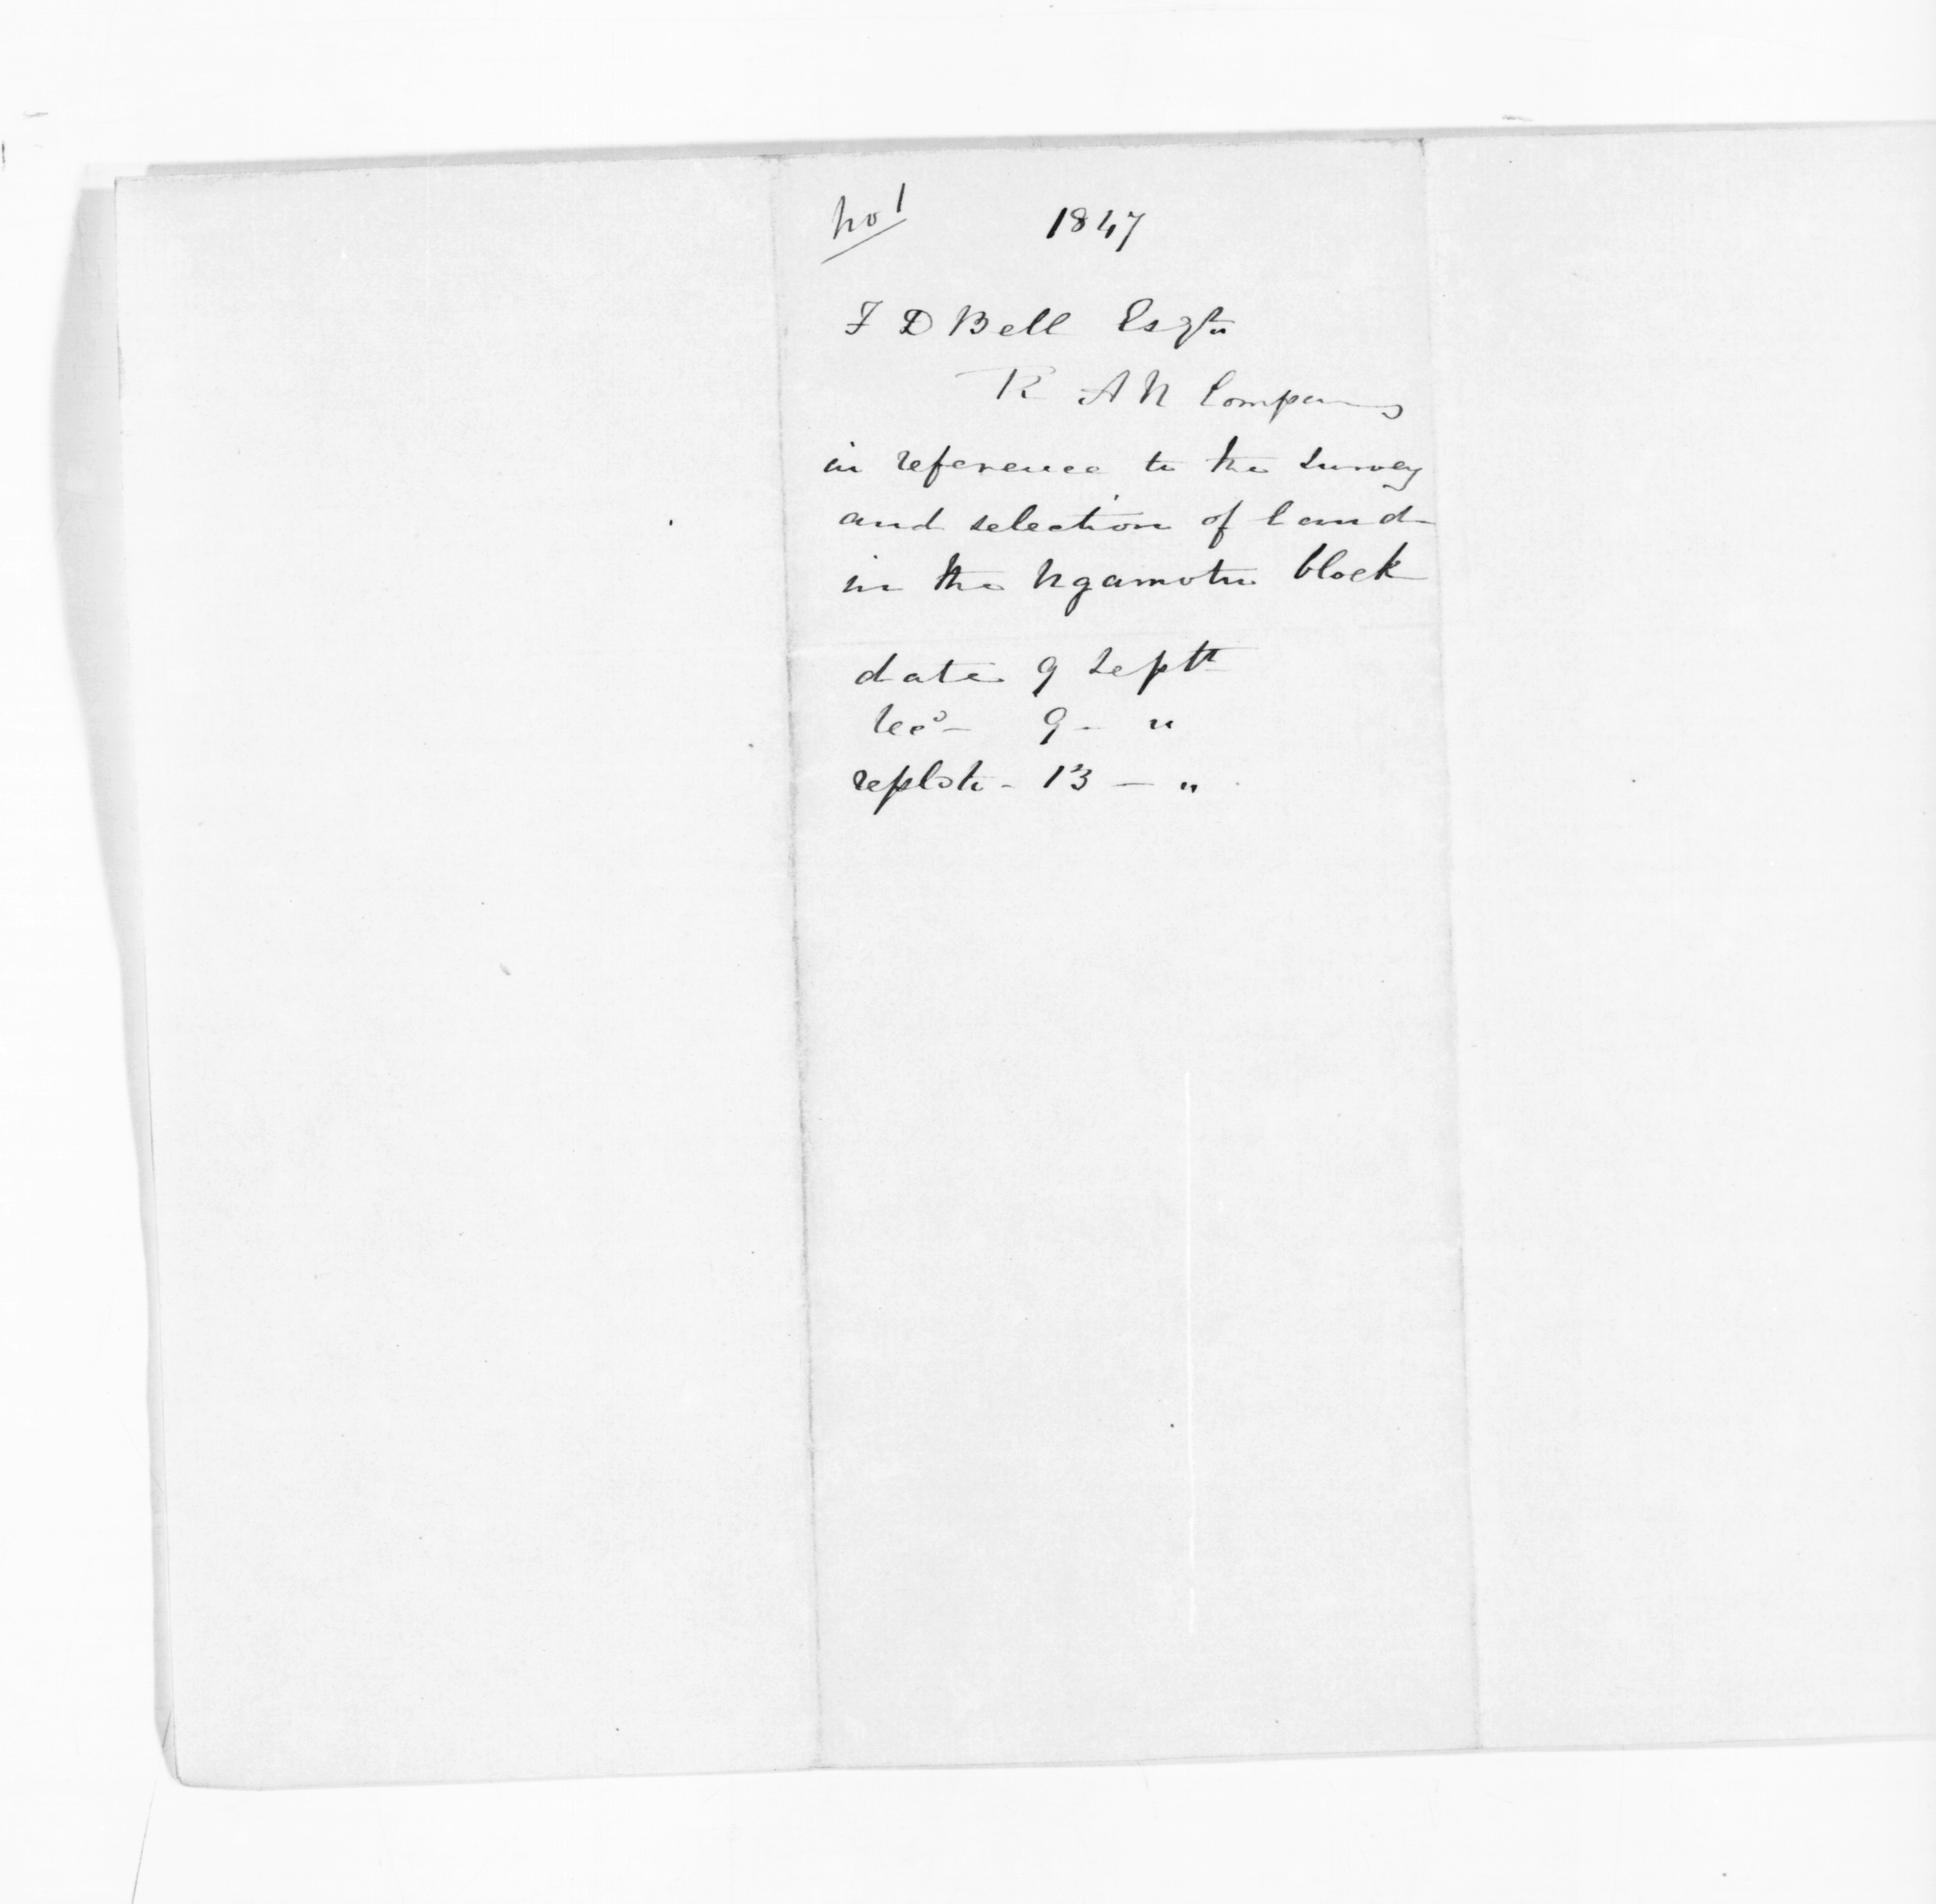 No 1 1847
F D Bell Esqre
R A N Company
in reference to the survey
and selection of land
in the Ngamotu block
date 9 Septr
Recd - 9 - "
replDto - 13 - "